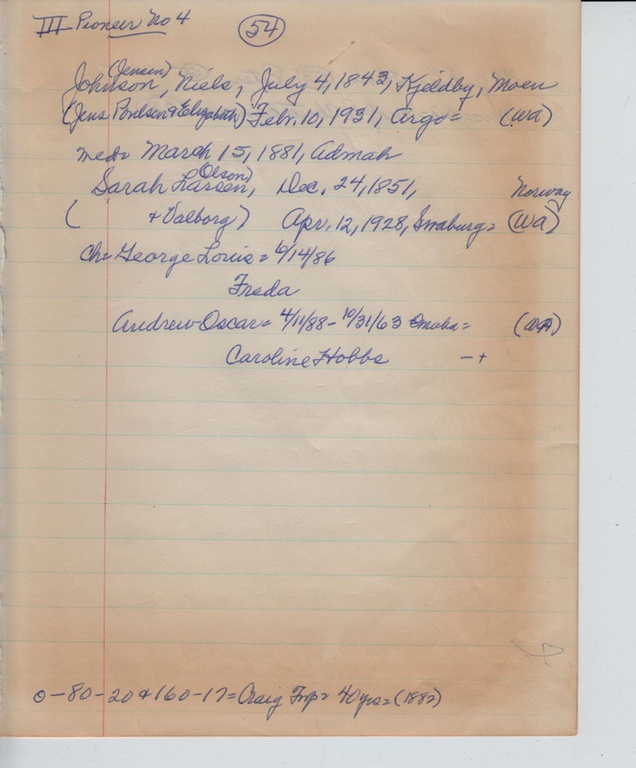 III Pioneer No 4 54
(Jensen)
Johnson, Niels, July 4, 1843, Kjeldby, Moen
(Jens Poulsen & Elizabeth) Febr. 10, 1931, Argo= (WA)
med= March 15, 1881, Admah
(Olson)
Sarah Larsen, Dec. 24, 1851, Norway
( + Valborg) Apr. 12, 1928, Swaburg= (WA)
Ch= George Louis= 6/14/86
Freda
Andrew Oscar= 4/11/88 - 10/31/63 Omaha= (WA)
Caroline Hobbs - +
0-80-20 & 160-17= Craig Twp= 40 yrs= (1882)